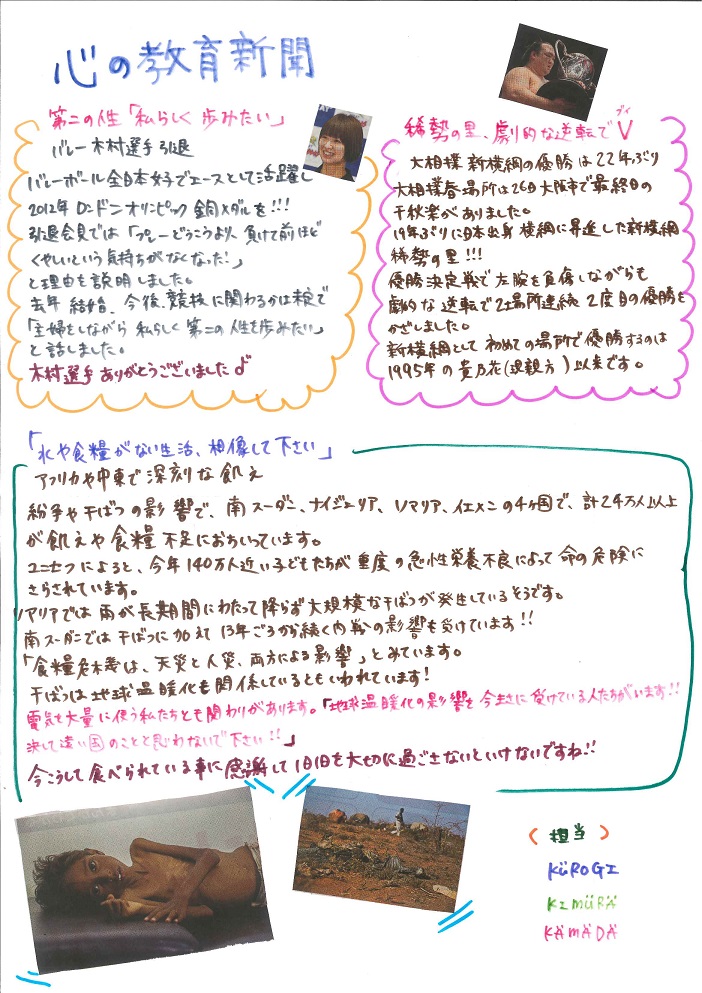 心の教育新聞
第二の人生「私らしく 歩みたい」
バレー 木村選手 引退
バレーボール全日本女子でエースとして活躍し
2012年 ロンドンオリンピック 銅メダルを!!!
引退会見では「プレーどうこうより、負けて前ほど
くやしいという気持ちがなくなった!」
と理由を説明しました。
去年 結婚、今後、競技に関わるかは未定で
「主婦をしながら 私らしく 第二の人生を歩みたい」
と話しました。
木村選手 ありがとうございました
稀勢の里、劇的な逆転で V
ブイ
大相撲 新横綱の優勝は22年ぶり
大相撲春場所は26日大阪市で最終日の
千秋楽がありました。
19年ぶりに日本出身 横綱に昇進した新横綱
稀勢の里!!!
優勝決定戦で左腕を負傷しながらも
劇的な逆転で2場所連続 2度目の優勝を
かざしました。
新横綱として 初めての場所で優勝するのは
1995年の貴乃花(現親方)以来です。
「水や食糧がない生活、想像して下さい」
アフリカや中東で深刻な飢え
紛争や干ばつの影響で、南スーダン、ナイジェリア、ソマリア、イエメンの4ヶ国で、計2千万人以上
が飢えや食糧不足におちいっています。
ユニセフによると、今年140万人近い子どもたちが重度の急性栄養不良によって命の危険に
さらされています。
ソマリアでは雨が長期間にわたって降らず大規模な干ばつが発生しているそうです。
南スーダンでは干ばつに加えて 13年ごろから続く内戦の影響も受けています!!
「食糧危機は、天災と人災、両方による影響」とみています。
干ばつは地球温暖化も関係しているともいわれています!
電気を大量に使う私たちとも関わりがあります。「地球温暖化の影響を今まさに受けている人たちがいます!!
決して遠い国のことと思わないで下さい!!」
今こうして食べられている事に感謝して1日1日を大切に過ごさないといけないですね!!
〈 担当 〉
KÜROGI
KIMÜRÄ
KÄMÄDÄ